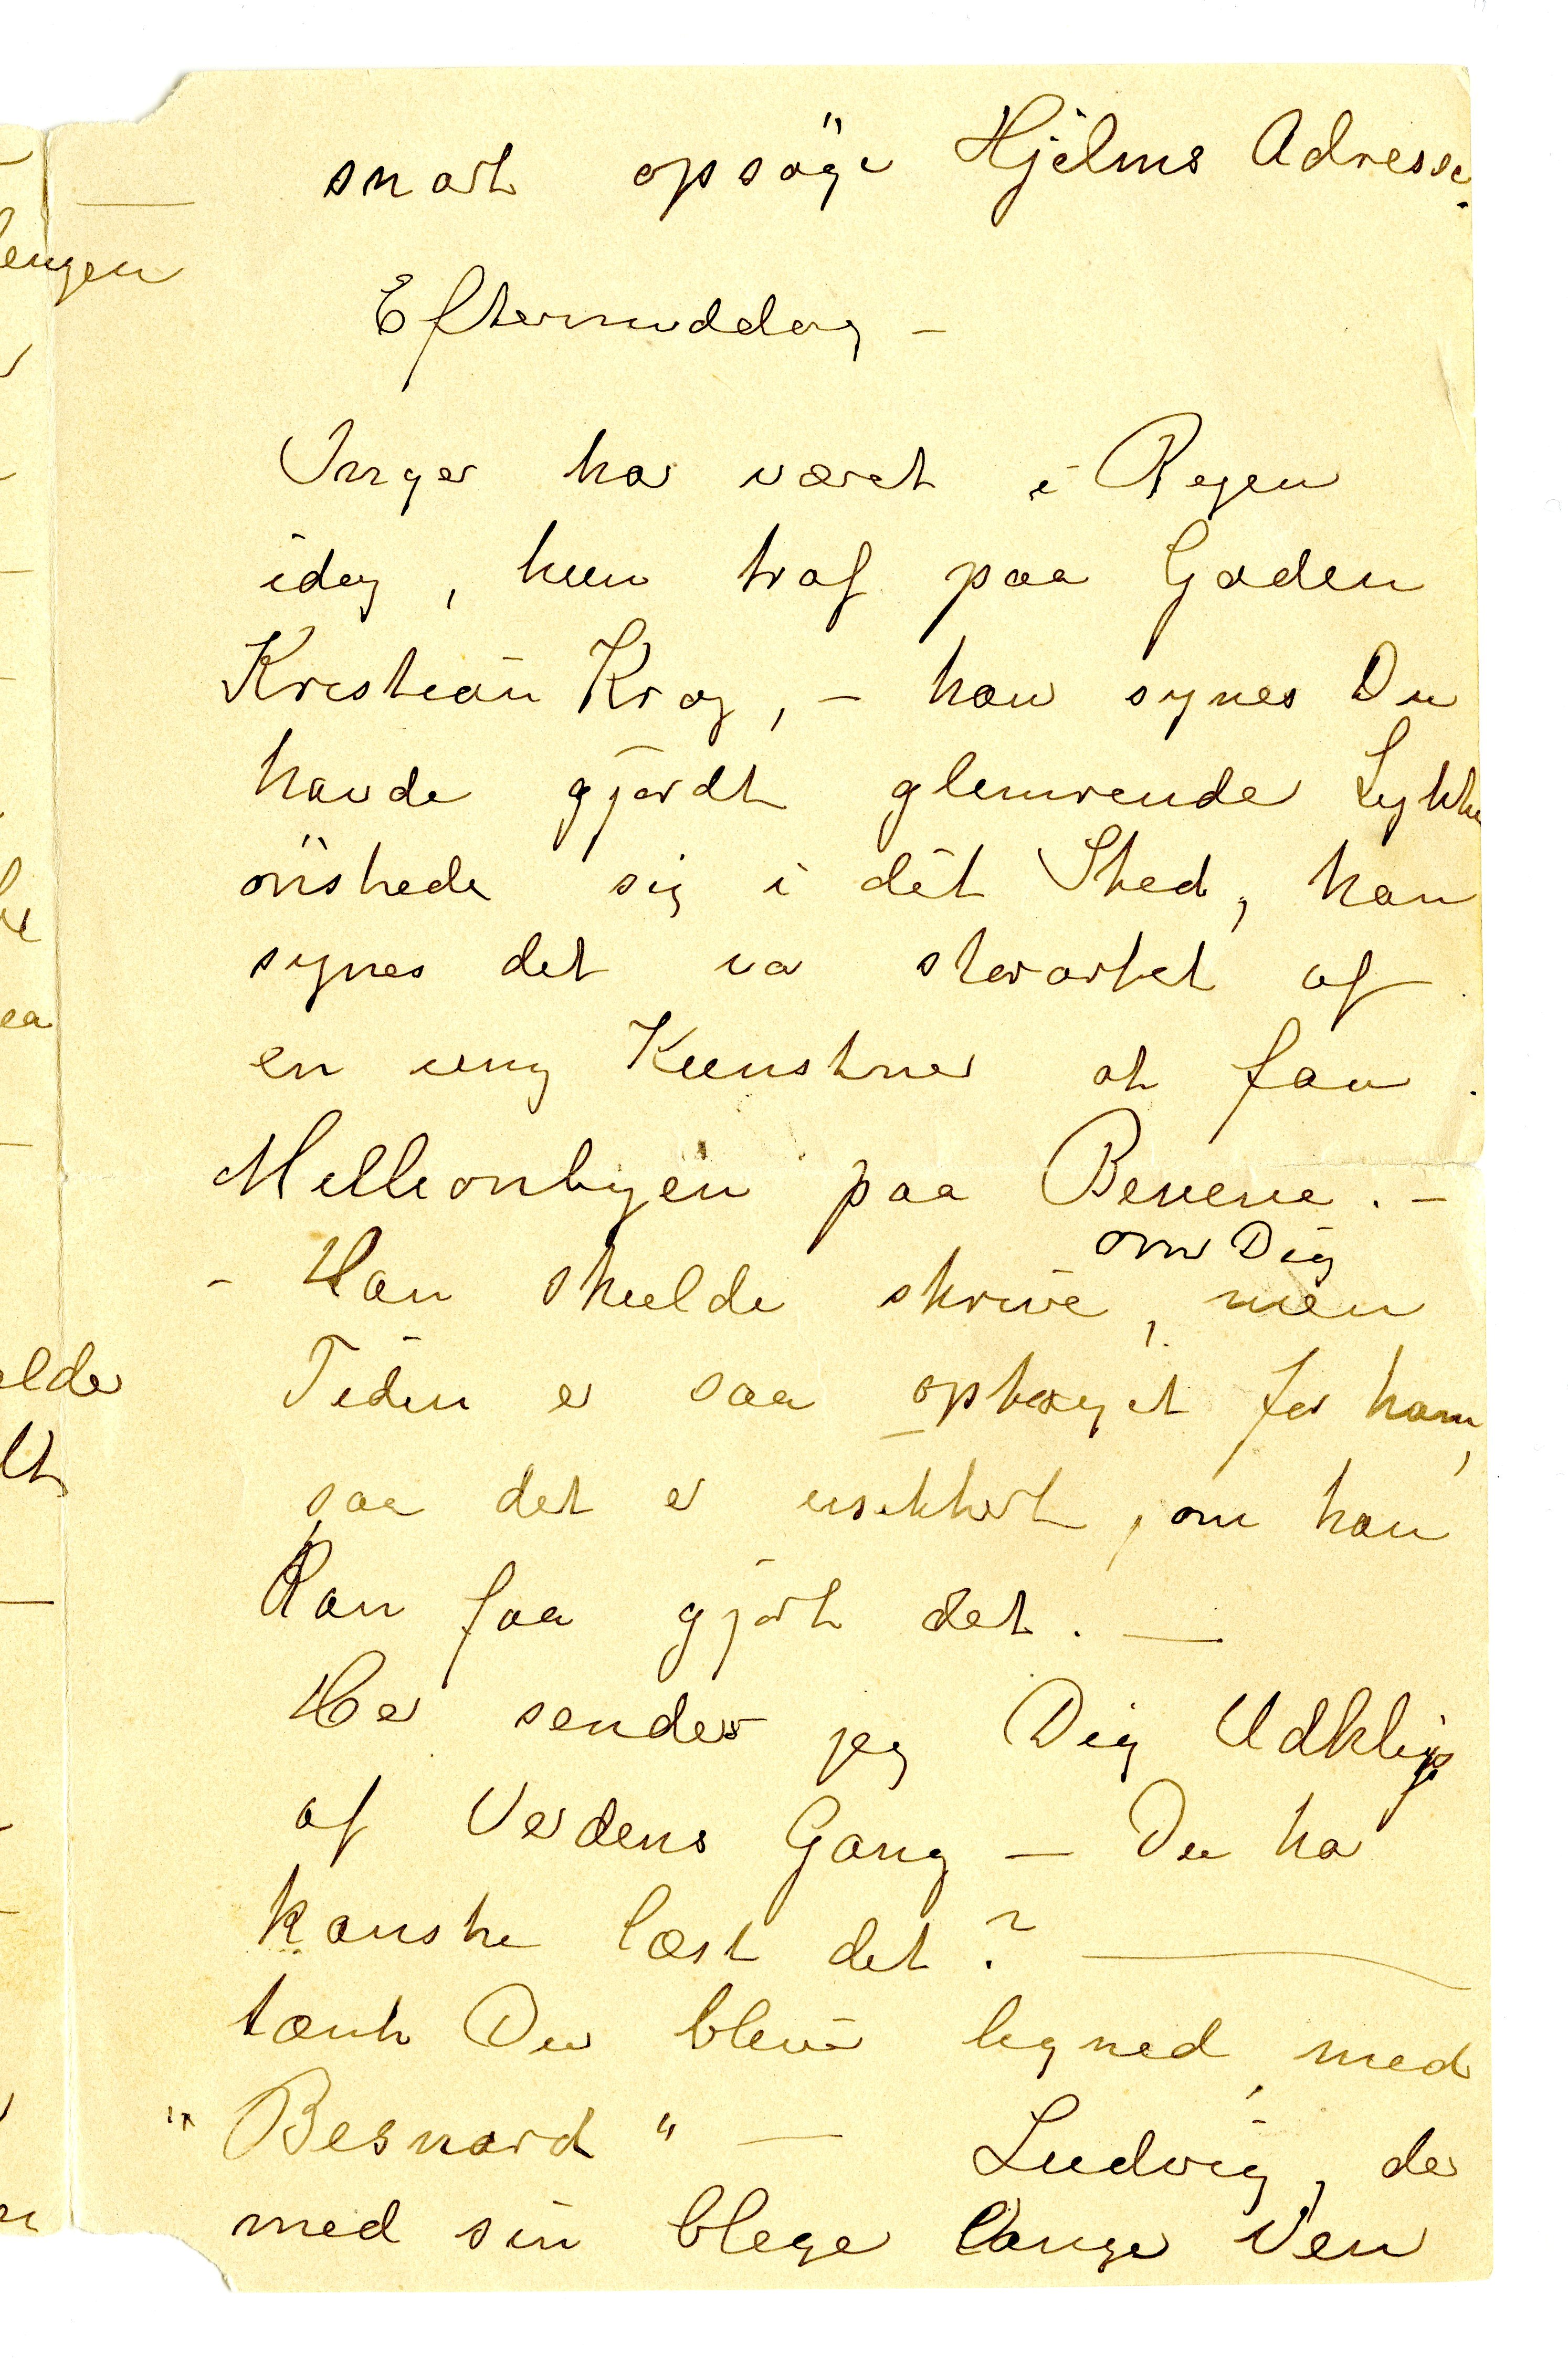 snart opsöge Hjelms Adresse.
Eftermiddag –
Inger har været i Byen
idag, hun traf paa Gaden
Kristian Krog, – han synes Du
havde gjordt glimrende Lykke
önskede sig i dit Sted, han
synes det va storartet af
en ung Kunstner at faa
Millionbyen paa Benene. –
om Dig
– Han skulde skrive, men
Tiden er saa optaget for ham,
saa det er usikkert, om han
Kan faa gjort det. —
Her sender jeg Dig Udklip
af Verdens Gang — Du ha
kanske læst det? —
tænk Du blive ligned med
"Besnard" — Ludvig, der
med sin blege lange Ven
engen
elde
lt
ea